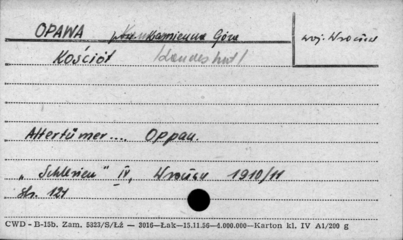 OPAWA pow. Kamienna Góra
woj. Wrocław
Kościół /Landeshut/
Altertümer.... Oppau.
„Schlesien" IV, Wrocław 1910/11
str. 121
CWD - B-15b. Zam. 5323/S/Łż — 2016—Łak—15.11.56—4.000.000—Karton kl. IV A1/200 g